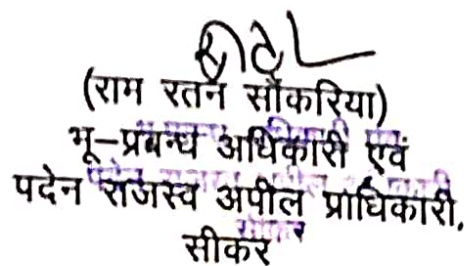 (राम रतन सौंकरिया)
भू-प्रबन्ध अधिकारी एवं
पदेन राजस्व अपील प्राधिकारी,
सीकर